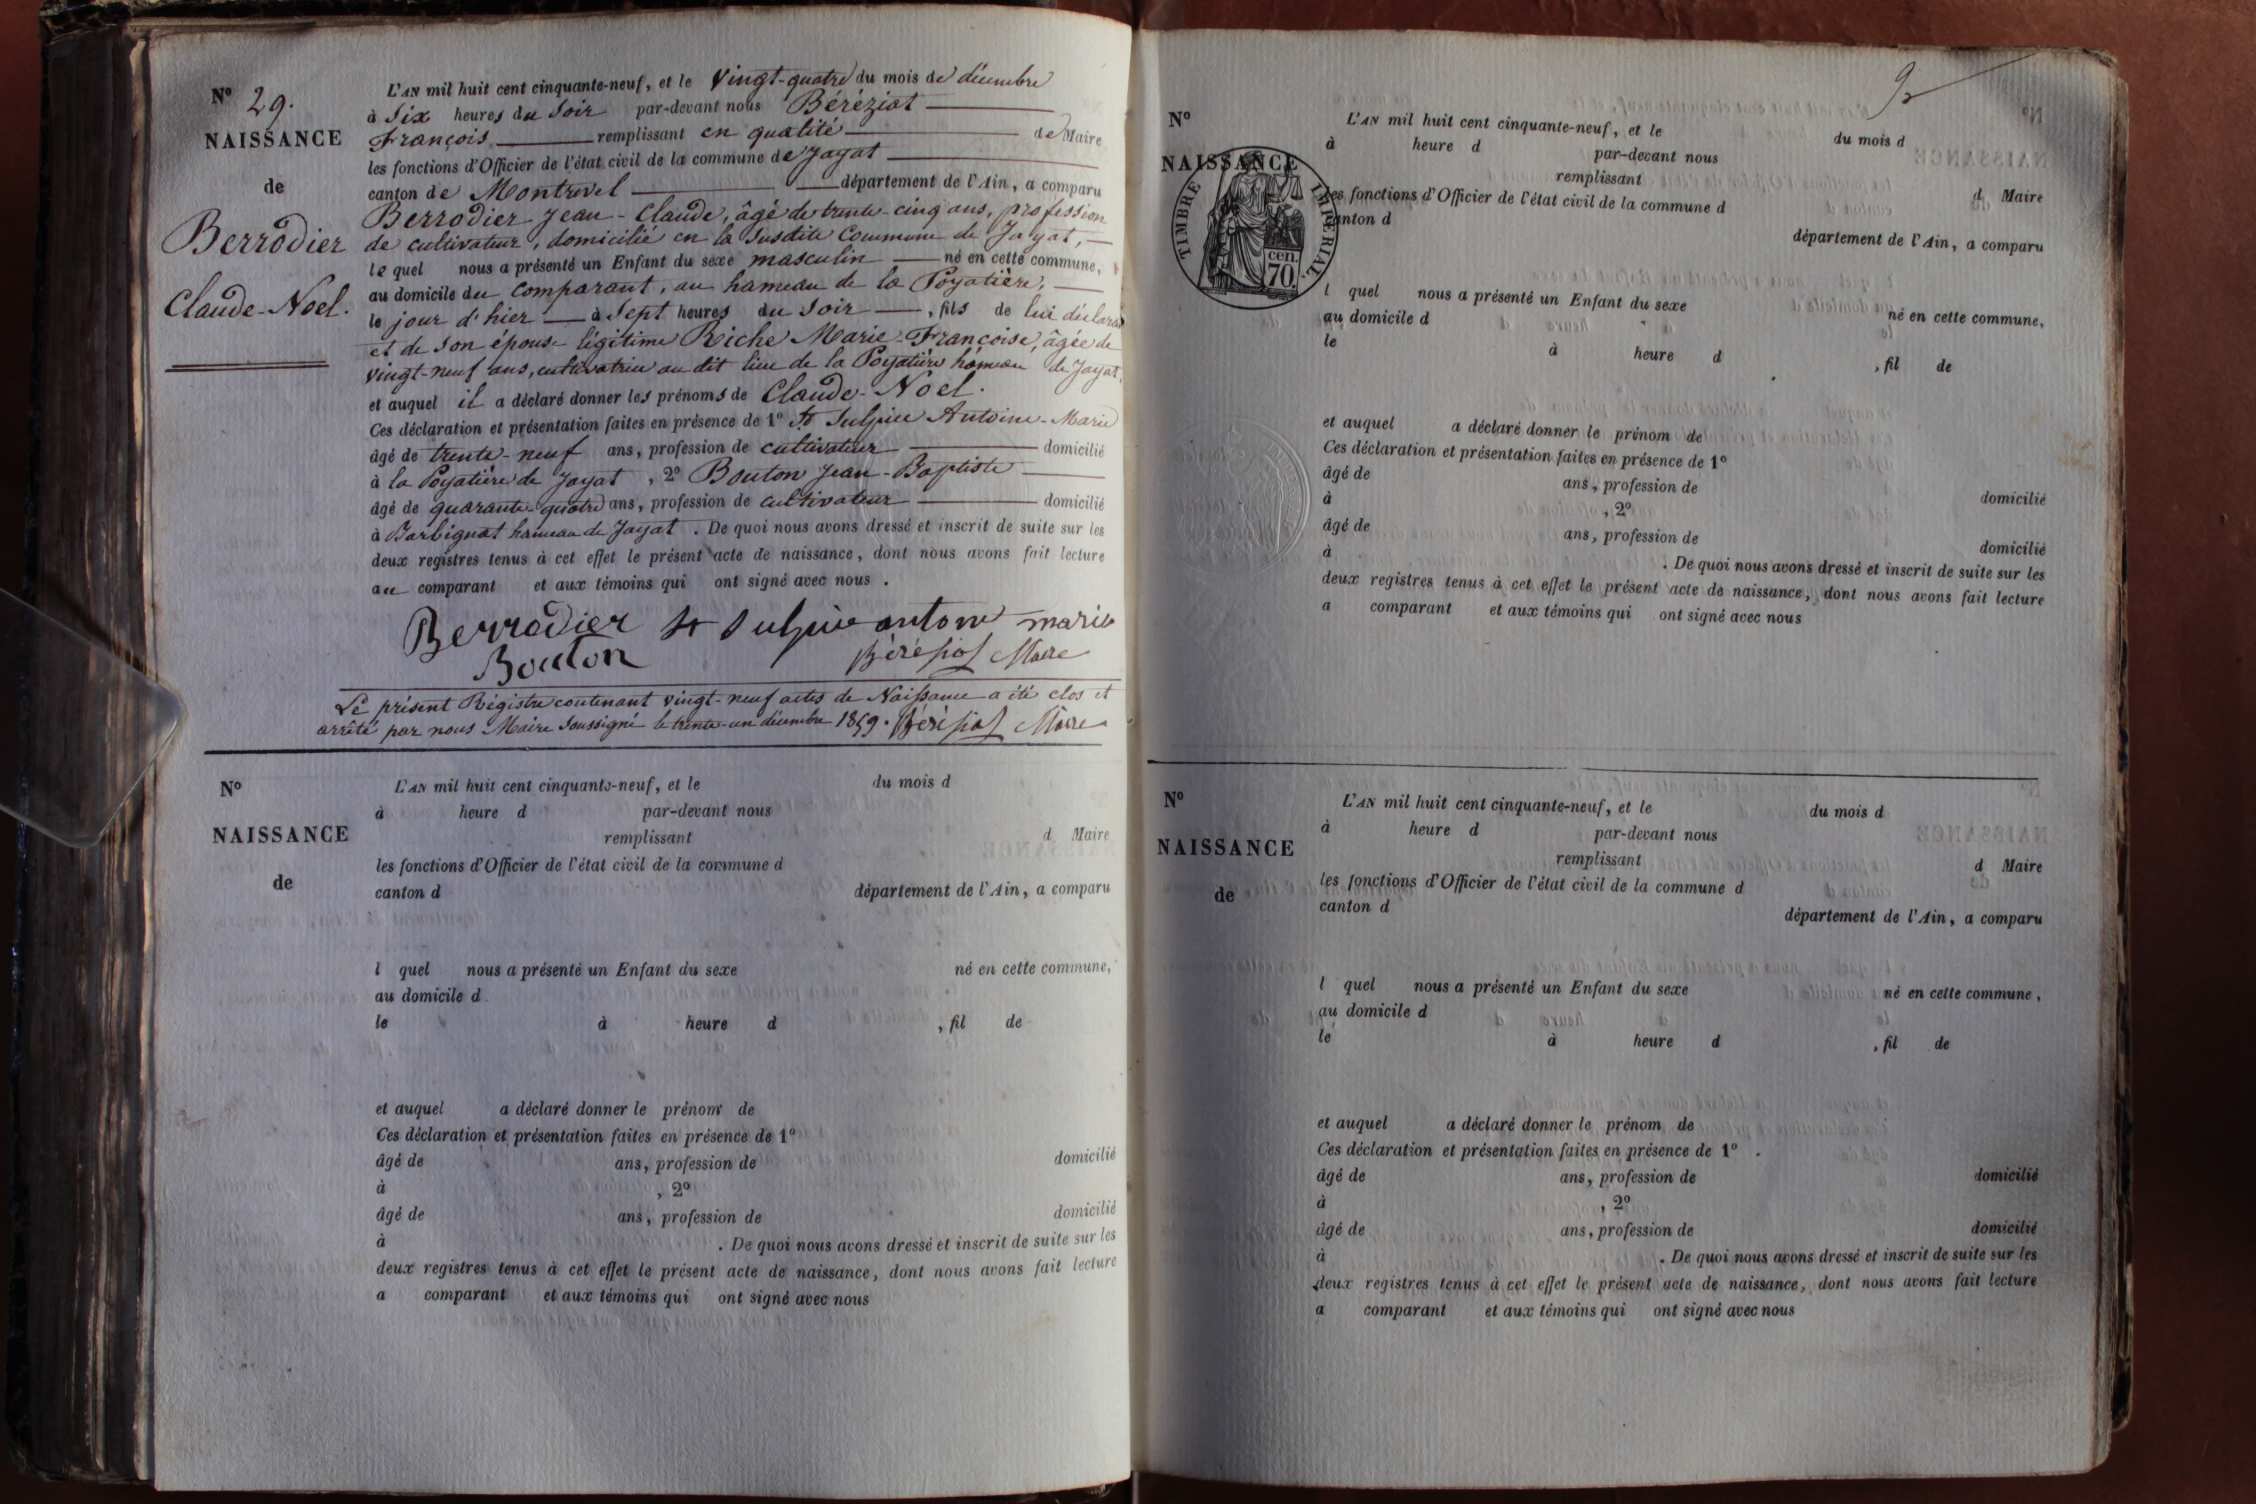 N° 29.
NAISSANCE
de
Berrodier
Claude-Noel.
L'AN mil huit cent cinquante-neuf, et le vingt-quatre du mois de décembre
à Six heures du Soir par-devant nous Béréziat
François remplissant en qualité de Maire
les fonctions d'Officier de l'état civil de la commune de Jayat
canton de Montrevel département de l'Ain, a comparu
Berrodier Jean-Claude, âgé de trente-cinq ans, profession
de cultivateur, domicilié en la susdite Commune de Jayat,
lequel nous a présenté un Enfant du sexe masculin né en cette commune,
au domicile du comparant, au hameau de la Poyatière,
le jour d'hier à Sept heures du Soir, fils de lui déclarant
et de son épouse légitime Riche Marie-Françoise, âgée de
vingt-neuf ans, cultivatrice au dit lieu de la Poyatière hameau de Jayat,
et auquel il a déclaré donner les prénoms de Claude-Noel.
Ces déclaration et présentation faites en présence de 1° St Sulpice Antoine-Marie
âgé de trente-neuf ans, profession de cultivateur domicilié
à la Poyatière de Jayat, 2° Bouton Jean-Baptiste
âgé de quarante-quatre ans, profession de cultivateur domicilié
à Barbignat hameau de Jayat. De quoi nous avons dressé et inscrit de suite sur les
deux registres tenus à cet effet le présent acte de naissance, dont nous avons fait lecture
au comparant et aux témoins qui ont signé avec nous.
Berrodier St Sulpice antoine marie
Bouton Béréziat Maire
Le présent Régistre contenant vingt-neuf actes de Naissance a été clos et
arrêté par nous Maire soussigné le trente-un décembre 1859. Béréziat Maire
N°
NAISSANCE
de
L'AN mil huit cent cinquante-neuf, et le du mois d
à heure d par-devant nous
remplissant d Maire
les fonctions d'Officier de l'état civil de la commune d
canton d département de l'Ain, a comparu
l quel nous a présenté un Enfant du sexe né en cette commune,
au domicile d
le à heure d , fil de
et auquel a déclaré donner le prénom de
Ces déclaration et présentation faites en présence de 1°
âgé de ans, profession de domicilié
à , 2°
âgé de ans, profession de domicilié
à . De quoi nous avons dressé et inscrit de suite sur les
deux registres tenus à cet effet le présent acte de naissance, dont nous avons fait lecture
a comparant et aux témoins qui ont signé avec nous
N°
NAISSANCE
TIMBRE IMPÉRIAL.
70 cen.
L'AN mil huit cent cinquante-neuf, et le du mois d
à heure d par-devant nous
remplissant d Maire
les fonctions d'Officier de l'état civil de la commune d
canton d département de l'Ain, a comparu
l quel nous a présenté un Enfant du sexe né en cette commune,
au domicile d
le à heure d , fil de
et auquel a déclaré donner le prénom de
Ces déclaration et présentation faites en présence de 1°
âgé de ans, profession de domicilié
à , 2°
âgé de ans, profession de domicilié
à . De quoi nous avons dressé et inscrit de suite sur les
deux registres tenus à cet effet le présent acte de naissance, dont nous avons fait lecture
a comparant et aux témoins qui ont signé avec nous
N°
NAISSANCE
de
L'AN mil huit cent cinquante-neuf, et le du mois d
à heure d par-devant nous
remplissant d Maire
les fonctions d'Officier de l'état civil de la commune d
canton d département de l'Ain, a comparu
l quel nous a présenté un Enfant du sexe né en cette commune,
au domicile d
le à heure d , fil de
et auquel a déclaré donner le prénom de
Ces déclaration et présentation faites en présence de 1°
âgé de ans, profession de domicilié
à , 2°
âgé de ans, profession de domicilié
à . De quoi nous avons dressé et inscrit de suite sur les
deux registres tenus à cet effet le présent acte de naissance, dont nous avons fait lecture
a comparant et aux témoins qui ont signé avec nous